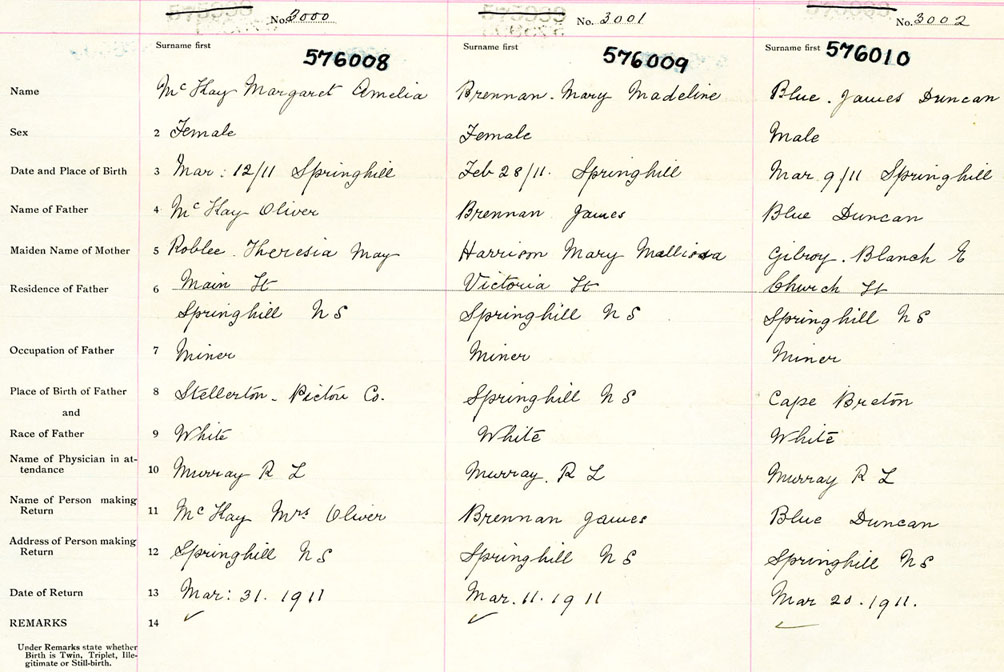 No. 3000 No. 3001 No. 3002
Surname first Surname first Surname first
576008 576009 576010
Name Mc Kay Margaret Amelia Brennan. Mary Madeline Blue. James Duncan
Sex 2 Female Female Male
Date and Place of Birth 3 Mar: 12/11 Springhill Feb 28/11. Springhill Mar 9/11 Springhill
Name of Father 4 Mc Kay Oliver Brennan James Blue Duncan
Maiden Name of Mother 5 Roblee. Theresia May Harrison Mary Gilroy. Blanch E
Residence of Father 6 Main St Victoria St Church St
Springhill N S Springhill N S Springhill N S
Occupation of Father 7 Miner Miner Miner
Place of Birth of Father 8 Stellerton - Pictou Co. Springhill N S Cape Breton
and
Race of Father 9 White White White
Name of Physician in at-
tendance 10 Murray R L Murray. R L Murray R L
Name of Person making
Return 11 Mc Kay Mrs Oliver Brennan James Blue Duncan
Address of Person making
Return 12 Springhill N S Springhill N S Springhill N S
Date of Return 13 Mar: 31. 1911 Mar. 11. 1911 Mar 20. 1911.
REMARKS 14
Under Remarks state whether
Birth is Twin, Triplet, Ille-
gitimate or Still-birth.